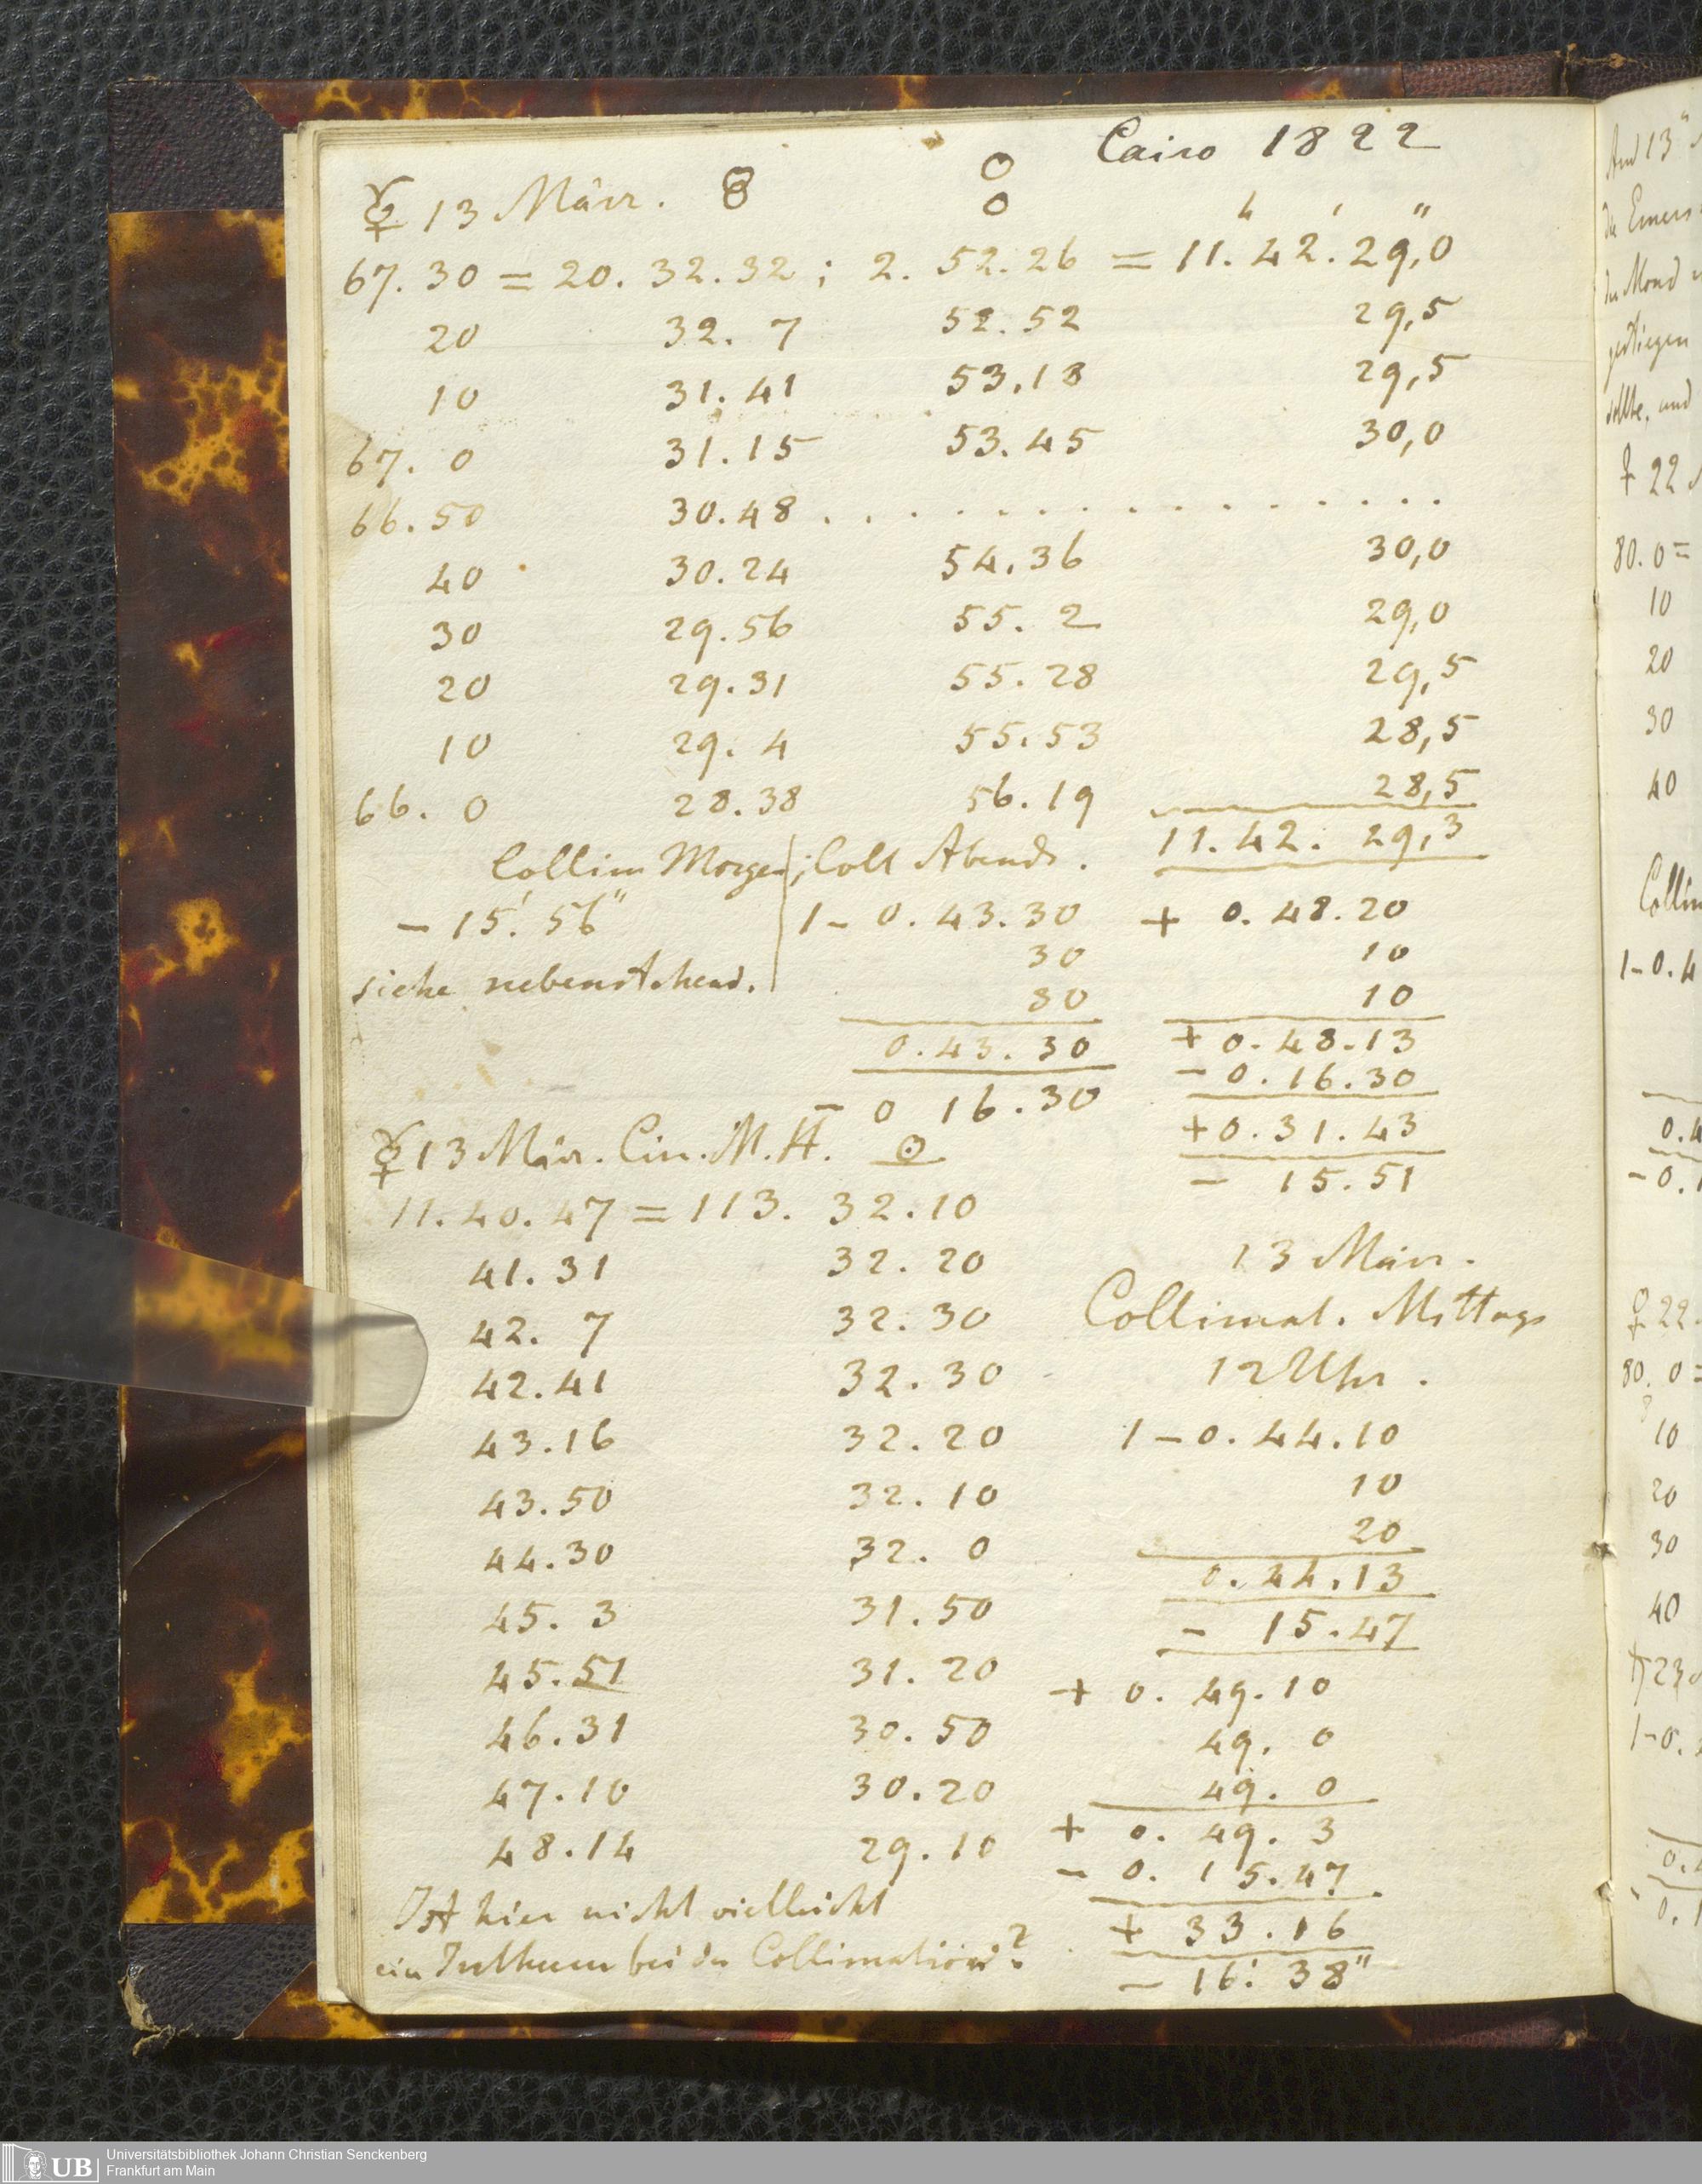 Cairo 1822
☿ 13 März.
h ′ ″
67. 30 = 20. 32. 32; 2. 52. 26 = 11. 42. 29,0
20 32. 7 52. 52 29,5
10 31. 41 53. 18 29,5
67. 0 31. 15 53. 45 30,0
66. 50 30. 48 . . . . . . . . . . . . . .
40 30. 24 54. 36 30,0
30 29. 56 55. 2 29,0
20 29. 31 55. 28 29,5
10 29. 4 55. 53 28,5
66. 0 28. 38 56. 19 28,5
11. 42. 29,3
Collim Morgen; Coll Abends.
− 15.′ 56″ 1− 0. 43. 30 + 0. 48. 20
30 10
siehe nebenstehend. 30 10
0. 43. 30 + 0. 48. 13
− 0. 16. 30
− 0 16. 30 + 0. 31. 43
− 15. 51
☿ 13 März. Cir. M. H. ☉
11. 40. 47 = 113. 32. 10
41. 31 32. 20
42. 7 32. 30
42. 41 32. 30
43. 16 32. 20
43. 50 32. 10
44. 30 32. 0
45. 3 31. 50
45. 51 31. 20
46. 31 30. 50
47. 10 30. 20
48. 14 29. 10
Ist hier nicht vielleicht
ein Irrthum bei der Collimation?
13 März.
Collimat. Mittags
12 Uhr.
1 − 0. 44. 10
10
20
0. 44. 13
− 15. 47
+ 0. 49. 10
49. 0
49. 0
+ 0. 49. 3
− 0. 15. 47
+ 33. 16
− 16.′ 38″
♀ 22
80. 0 =
10
20
30
40
♀ 22.
80. 0 =
10
20
30
40
UB
Universitätsbibliothek Johann Christian Senckenberg
Frankfurt am Main